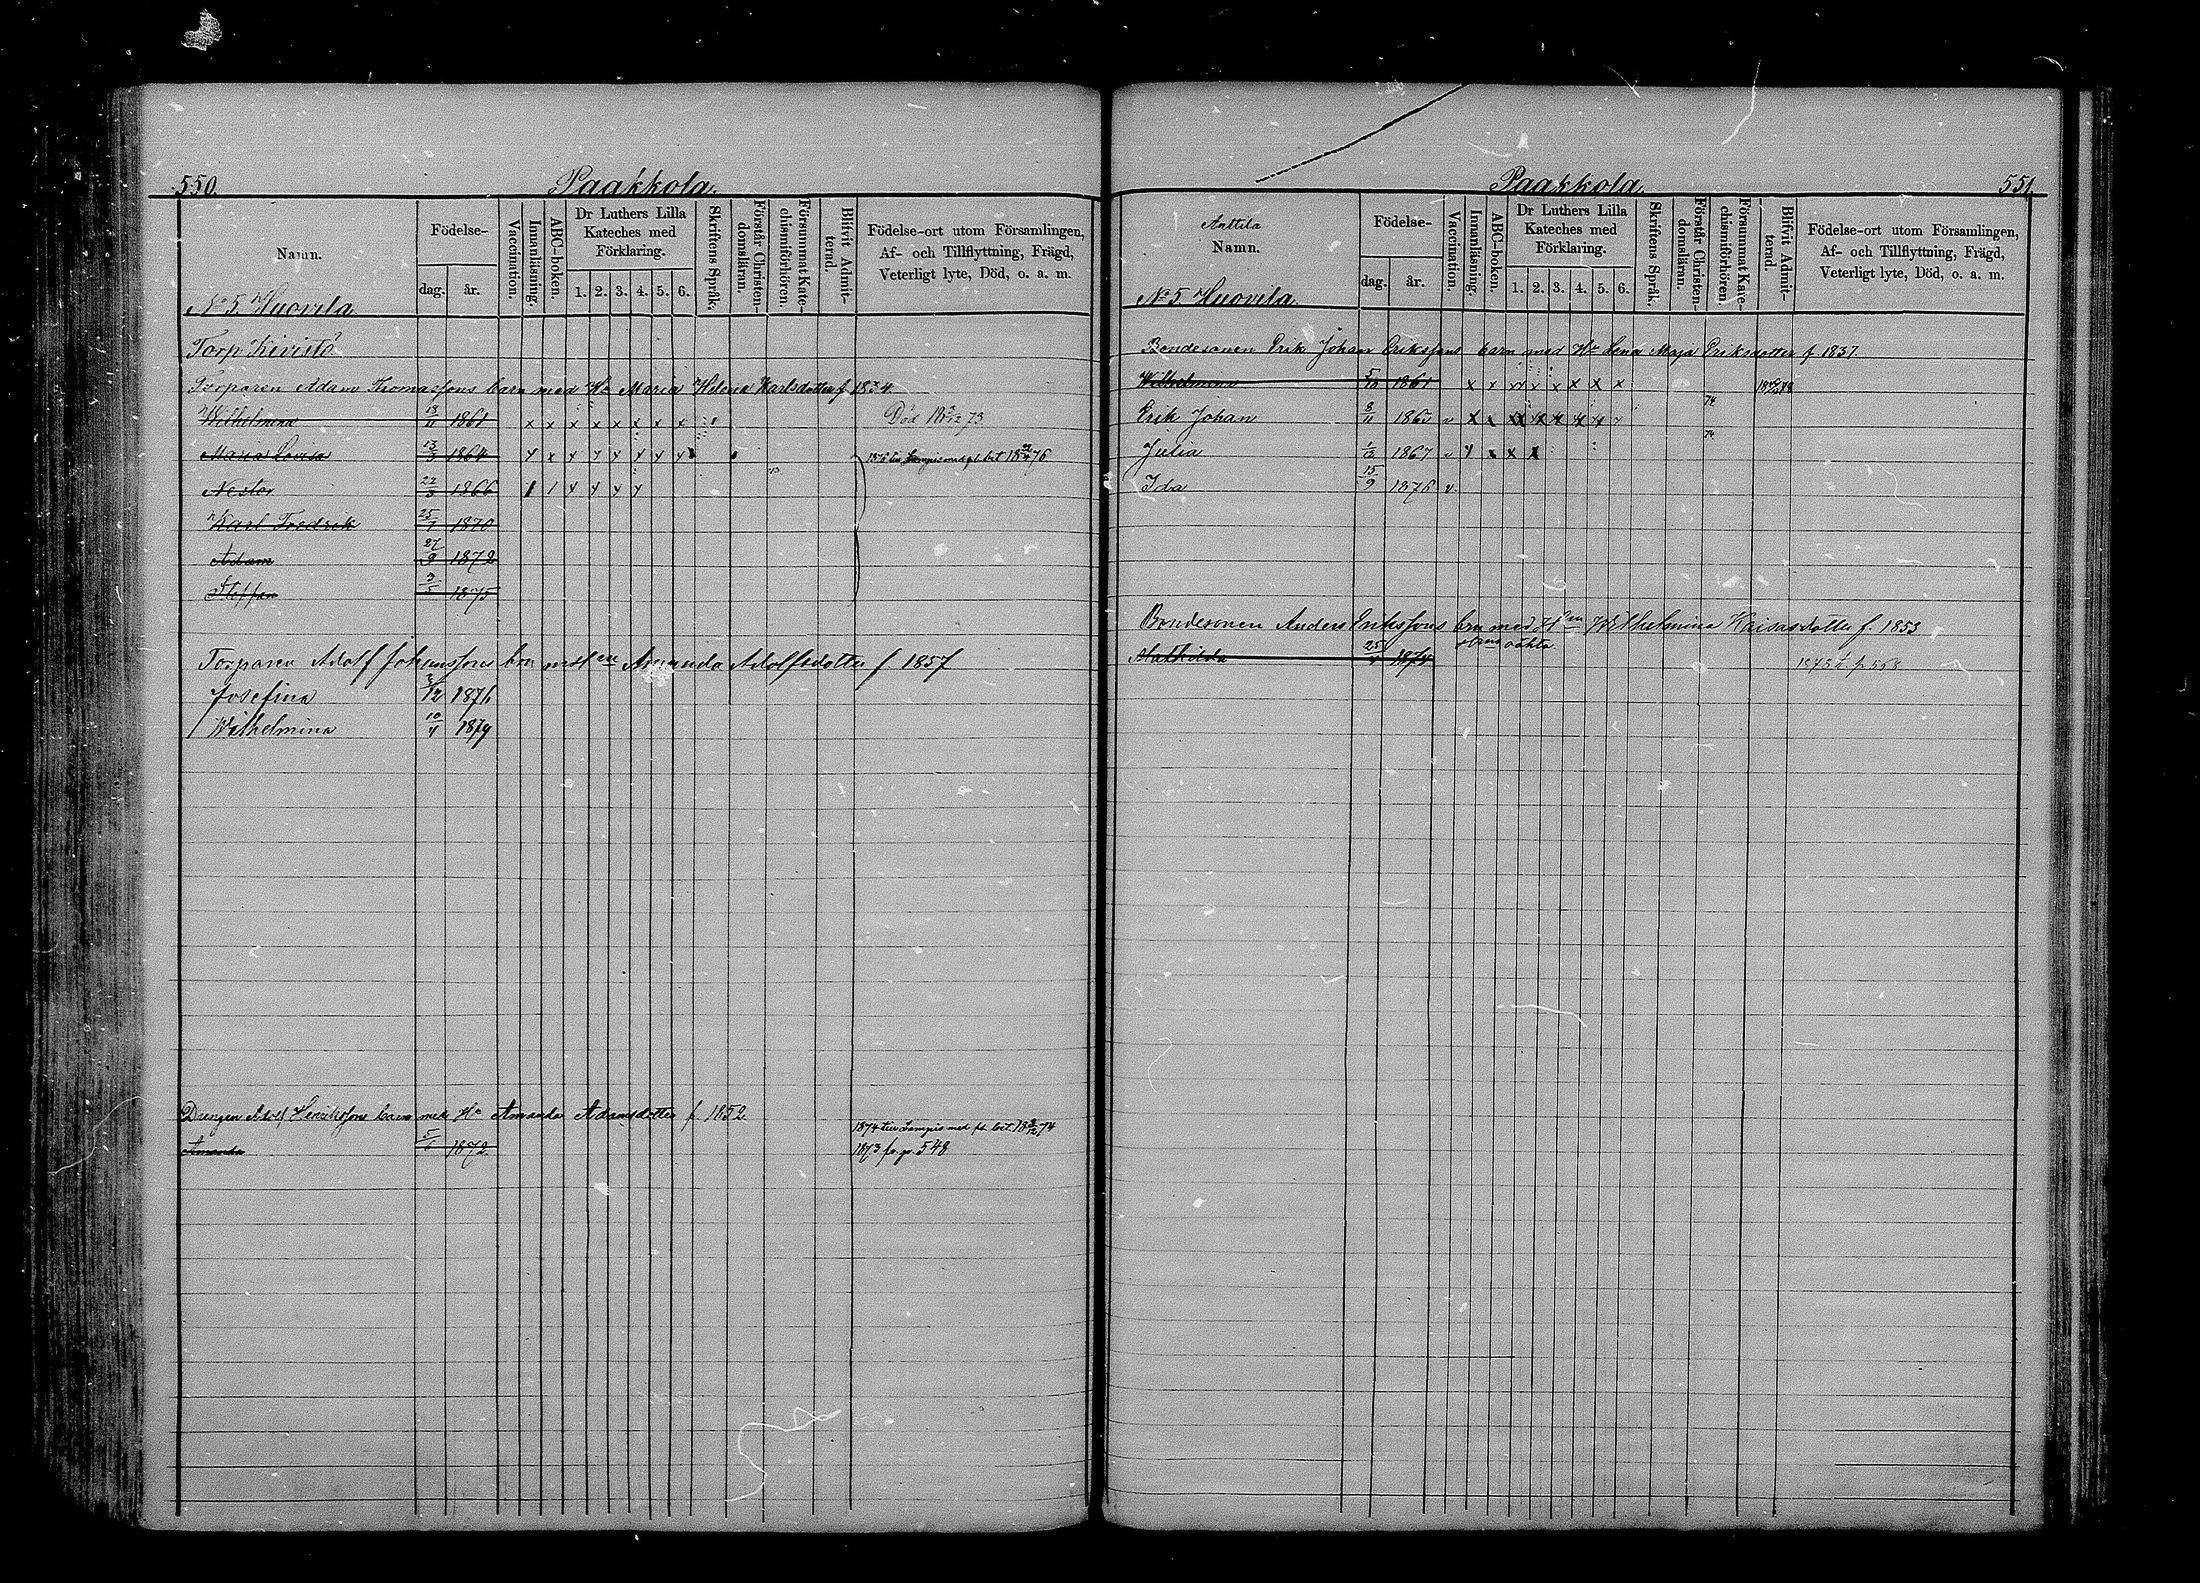 550.
Paakkola.
Namn.
Födelse-
dag.
år.
Vaccination.
Innanläsning.
ABC-boken.
Dr Luthers Lilla
Kateches med
Förklaring.
1. 2. 3. 4. 5. 6.
Skriftens Språk.
Förstår Christen-
domsläran.
Försummat Kate-
chismiförhören.
Blifvit Admit-
terad.
Födelse-ort utom Församlingen,
Af- och Tillflyttning, Frägd,
Veterligt lyte, Död, o. a. m.
No 5. Huovila.
Torp Kivistö
Torparen Adam Thomassons barn med Hu Maria Helena Karlsdotter f 1834
Wilhelmina 13/11 1861 x x x x x x x x Död 73
Maria Lovisa 13/3 1864 med bet 76
Nestor 22/3 1866
Karl Fredrik 25/7 1870
Adam 27/9 1872
Steffan 1875
Torparen Adolf Johanssons brn Amanda Adolfsdotter f 1857
Josefina 1876
Wilhelmina 10/4 1879
Drengen Adolf Henrikssons barn med Hu Amanda Adamsdotter f 1852
1874 till Lampis med fl. bet. 74
Amanda 1872 1873 fr. p. 548
Paakkola.
551.
Anttila
Namn.
Födelse-
dag.
år.
Vaccination.
Innanläsning.
ABC-boken.
Dr Luthers Lilla
Kateches med
Förklaring.
1. 2. 3. 4. 5. 6.
Skriftens Språk.
Förstår Christen-
domsläran.
Försummat Kate-
chismiförhören
Blifvit Admit-
terad.
Födelse-ort utom Församlingen,
Af- och Tillflyttning, Frägd,
Veterligt lyte, Död, o. a. m.
No 5. Huovila.
Bondesonen Erik Johan Erikssons barn med Hu Lena Maja Eriksdotter f 1837
Wilhelmina 5/10 1861 x x x x x x x x
74
Erik Johan 8/11 1865 v
74
Julia 1/12 1867 v
Ida 15/9 1876 v
Bondesonen Anders Erikssons brn med Hun Wilhelmina Kaisasdotter f. 1853
Mathilda 25/4 1874 1875 p 558